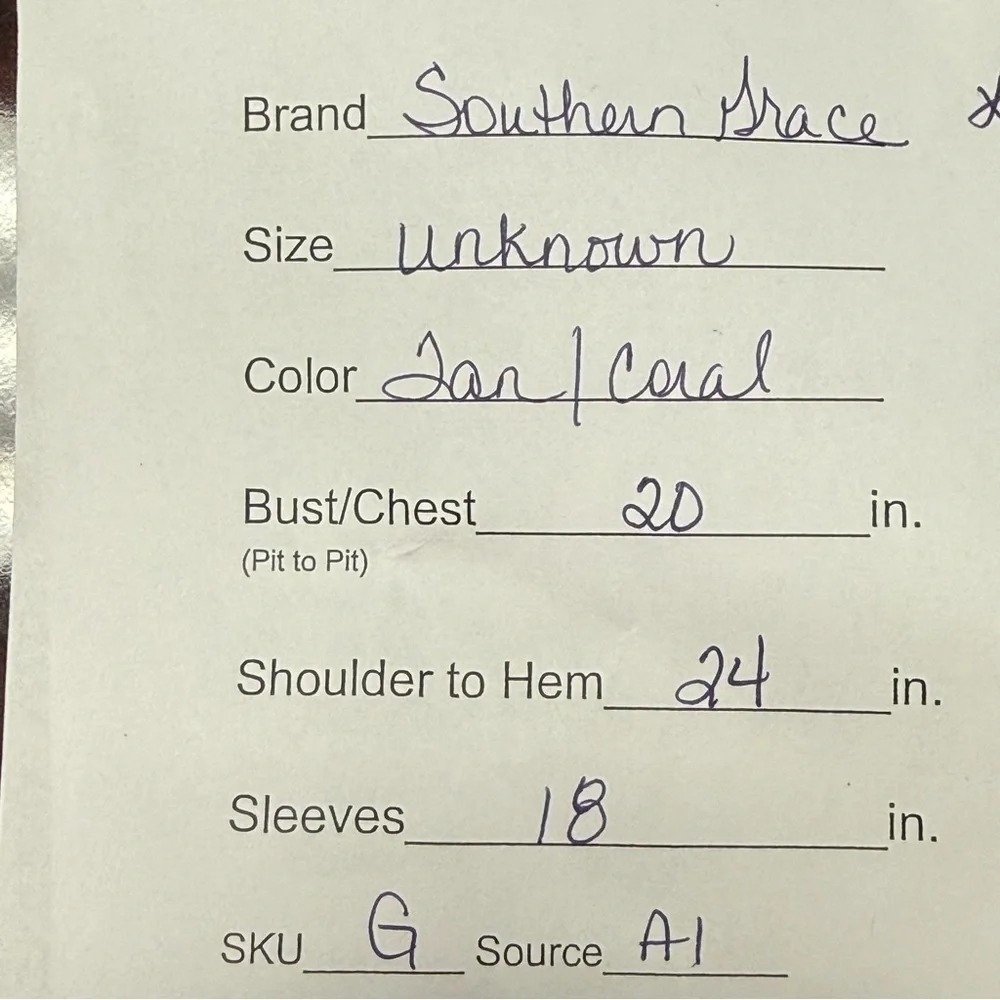 Brand Southern Grace
Size Unknown
Color Tan/Coral
Bust/Chest 20 in.
(Pit to Pit)
Shoulder to Hem 24 in.
Sleeves 18 in.
SKU G Source A1